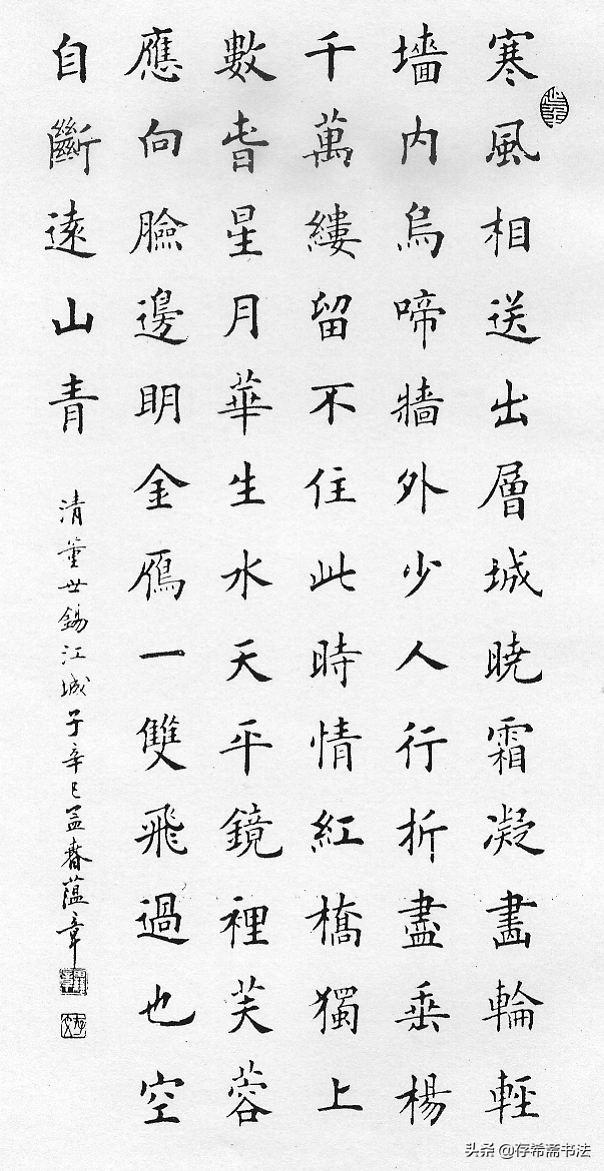 寒風相送出層城曉霜凝畫輪輕
墻内烏啼牆外少人行折盡垂楊
千萬縷留不住此時情紅橋獨上
數春星月華生水天平鏡裡芙蓉
應向臉邊明金鴈一雙飛過也空
自斷遠山青
清董世錫江城子辛巳孟春蘊章
头条 @存希斋书法